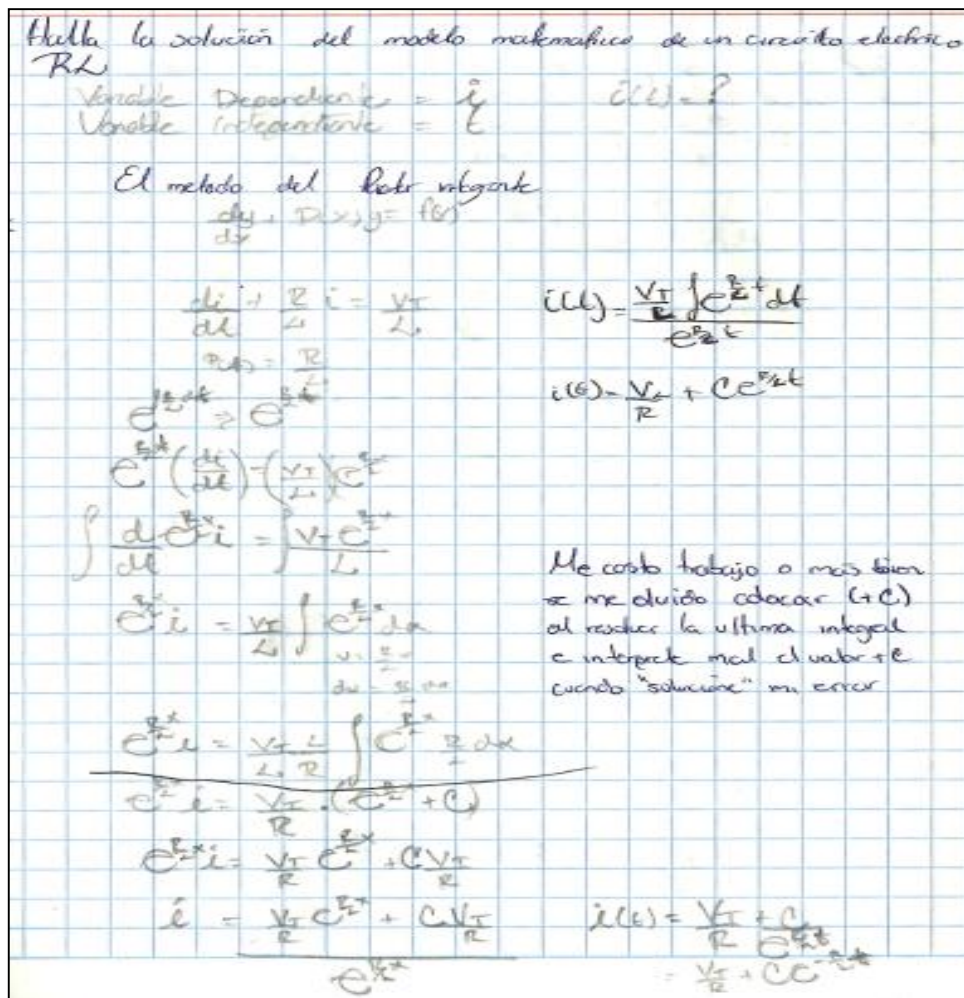 Halla la solución del modelo matematico de un circuito electrico
RL
Variable Dependiente = i
i(t) = ?
Variable independiente = t
El metodo del factor integrante
dy/dx + P(x)y = f(x)
di/dt + R/L i = VT/L
P(t) = R/L
e^(R/L t)
e^(R/L x) (di/dt) = (VT/L) e^(R/L)
∫ d/dt e^(R/L x) i = ∫ VT e^(R/L x) / L
e^(R/L x) i = VT/L ∫ e^(R/L x) dx
e^(R/L x) i = VT/L L/R ∫ e^(R/L x) R/L dx
e^(R/L x) i = VT/R · (e^(R/L x) + C)
e^(R/L x) i = VT/R e^(R/L x) + C VT/R
i = (VT/R e^(R/L x) + C VT/R) / e^(R/L x)
i(t) = VT/R ∫ e^(R/L t) dt / e^(R/L t)
i(t) = Vt/R + C e^(R/L t)
Me costo trabajo o mas bien
se me olvido colocar (+C)
al resolver la ultima integral
e interprete mal el valor +C
cuando "solucione" mi error
i(t) = VT/R + C / e^(R/L t)
= VT/R + C e^(-R/L t)